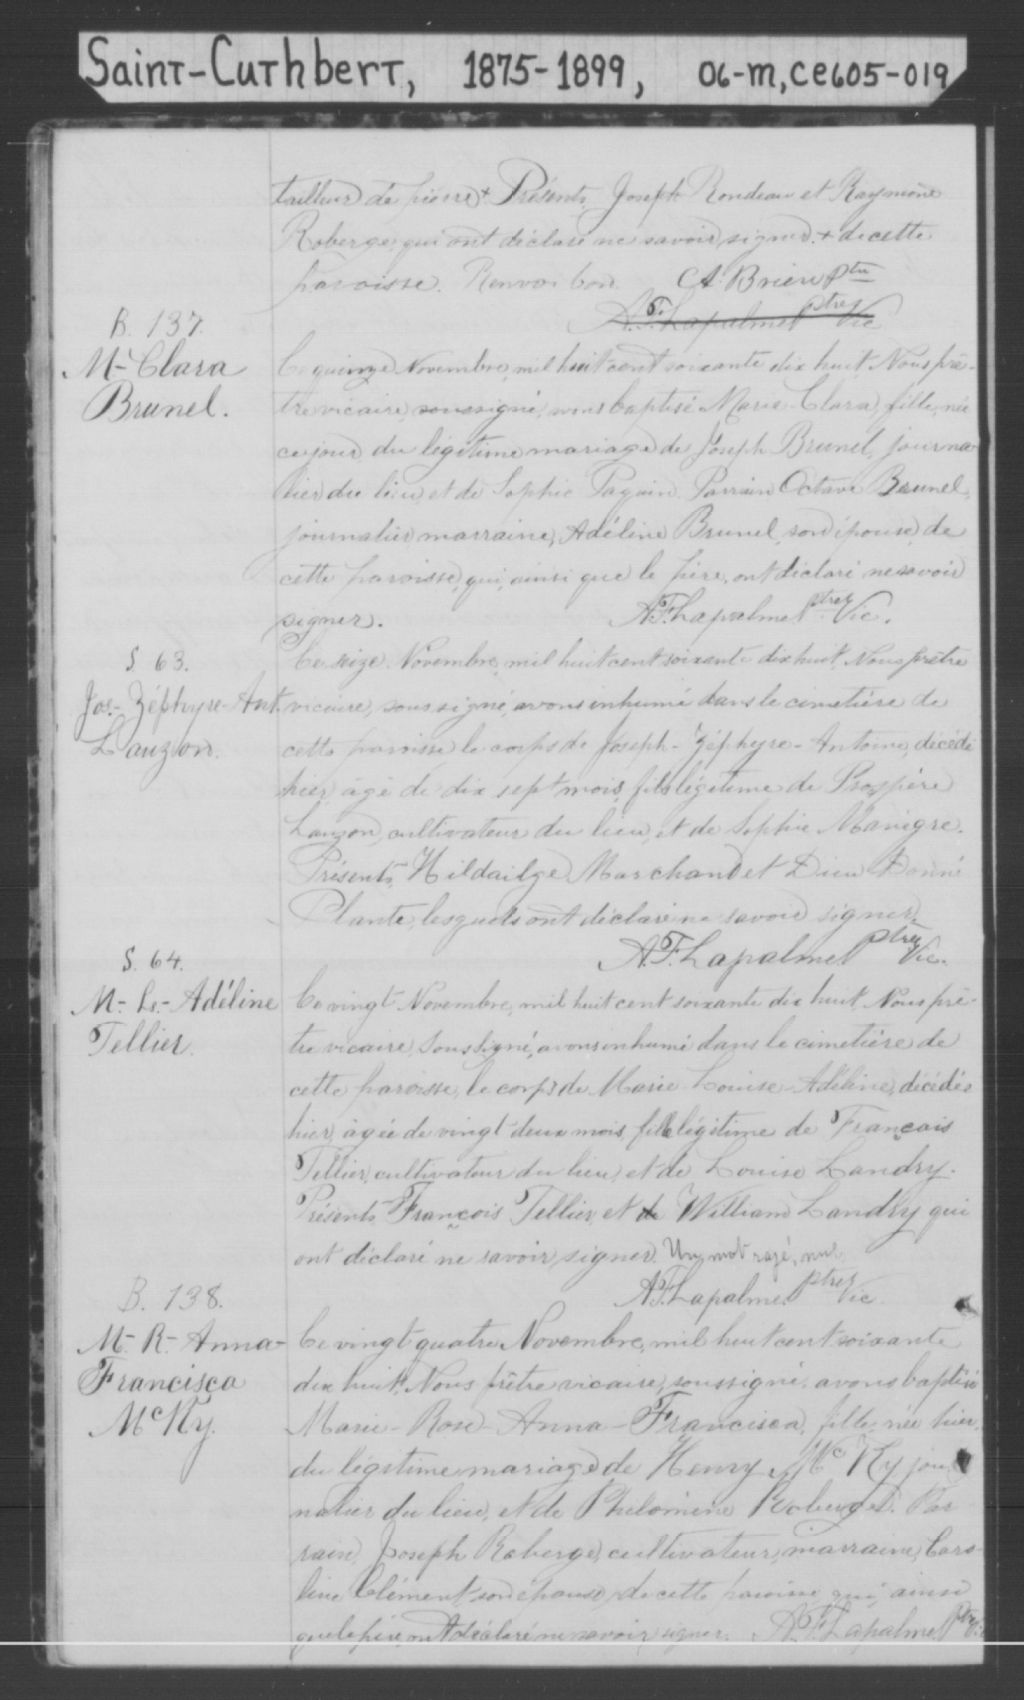 Saint-Cuthbert, 1875-1899, 06-m, ce605-019
tailleur de pierre + Présents Joseph Rondeau et Raymond
Roberge, qui ont déclaré ne savoir signer. + de cette
paroisse. Renvoi bon. A. Brien Ptre
A.F. Lapalme Ptre Vic
B. 137.
M- Clara
Brunel.
Ce quinze Novembre, mil huit cent soixante dix huit, Nous prê-
tre vicaire, soussigné, avons baptisé Marie-Clara, fille, née
ce jour, du légitime mariage de Joseph Brunel, journa
lier du lieu, et de Sophie Paquin. Parrain Octave Brunel,
journalier, marraine, Adéline Brunel, son épouse, de
cette paroisse, qui, ainsi que le père, ont déclaré ne savoir
signer. A.F. Lapalme Ptre Vic.
S. 63.
Jos.- Zéphyre- Ant.
Lauzon.
Ce seize Novembre, mil huit cent soixante dix huit, Nous prêtre
vicaire, soussigné, avons inhumé dans le cimetière de
cette paroisse le corps de Joseph- Zéphyre- Antoine, décédé
hier, âgé de dix sept mois, fils légitime de Prospère
Lauzon, cultivateur du lieu, et de Sophie Manègre.
Présents, Hildailge Marchand et Dieu Donné
Plante, lesquels ont déclaré ne savoir signer.
A.F. Lapalme Ptre Vic.
S. 64.
M- Ls.- Adéline
Tellier.
Ce vingt Novembre, mil huit cent soixante dix huit, Nous prê-
tre vicaire, soussigné, avons inhumé dans le cimetière de
cette paroisse, le corps de Marie Louise Adéline, décédée
hier, âgée de vingt deux mois, fille légitime de François
Tellier, cultivateur du lieu, et de Louise Landry.
Présents, François Tellier, et de William Landry qui
ont déclaré ne savoir signer. Un mot rayé, nul.
A.F. Lapalme Ptre Vic.
B. 138.
M- R- Anna-
Francisca
McKy.
Ce vingt quatre Novembre, mil huit cent soixante
dix huit, Nous prêtre vicaire, soussigné, avons baptisé
Marie- Rose- Anna- Francisca, fille, née hier,
du légitime mariage de Henry McKy jour
nalier du lieu, et de Philomène Roberge. Par
rain, Joseph Roberge, cultivateur, marraine, Caro-
line Clément, son épouse, de cette paroisse, qui, ainsi
que le père, ont déclaré ne savoir signer. A.F. Lapalme Ptre Vic